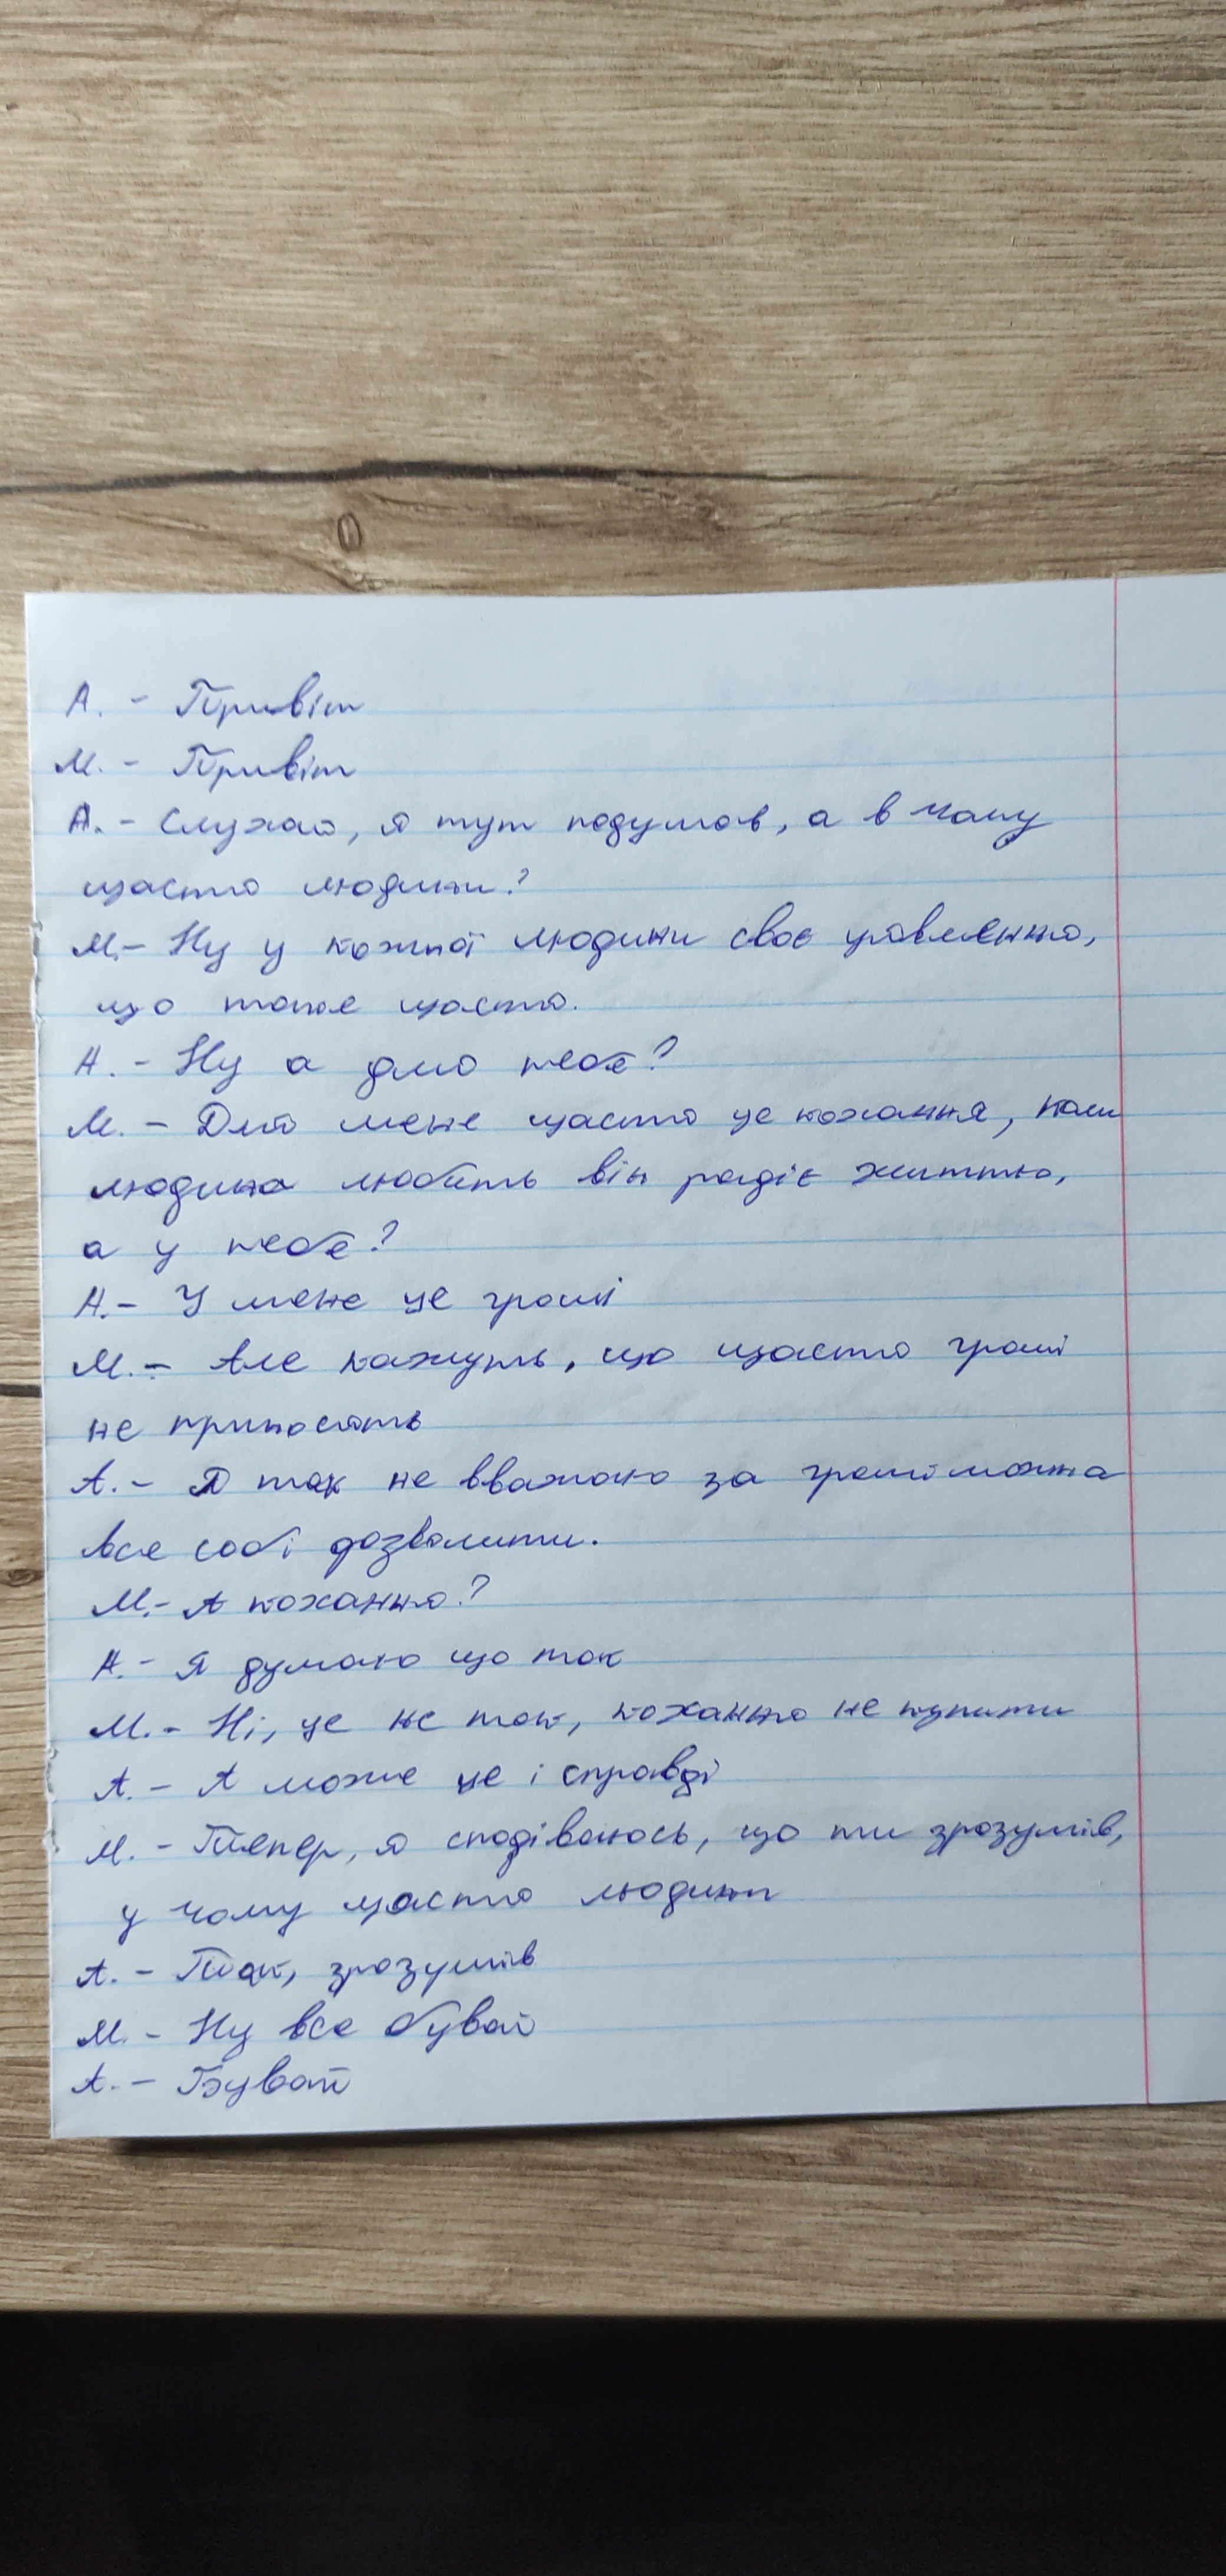 А. - Привіт
М. - Привіт
А. - Слухай, я тут подумав, а в чому
щастя людини?
М. - Ну у кожної людини своє уявлення,
що таке щастя.
А. - Ну а для тебе?
М. - Для мене щастя це кохання, коли
людина любить він радіє життю,
а у тебе?
А. - У мене це гроші
М. - Але кажуть, що щастя гроші
не приносять
А. - Я так не вважаю за гроші можна
все собі дозволити.
М. - А кохання?
А. - Я думаю що так
М. - Ні, це не так, кохання не купити
А. - А може це і справді
М. - Тепер, я сподіваюсь, що ти зрозумів,
у чому щастя людини
А. - Так, зрозумів
М. - Ну все бувай
А. - Бувай